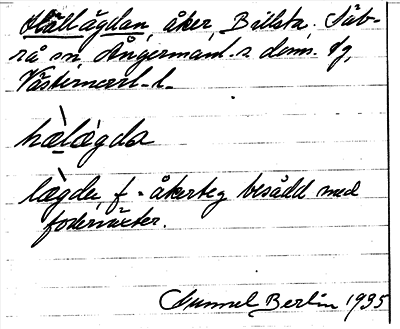 Hällägdan, åker, Billsta, Säb-
rå sn, Ångermanl-s doms. dg,
Västernorrl-l.
hælægda
lægda, f = åkerteg besådd med
foderväxter.
Gunnel Berlin 1935